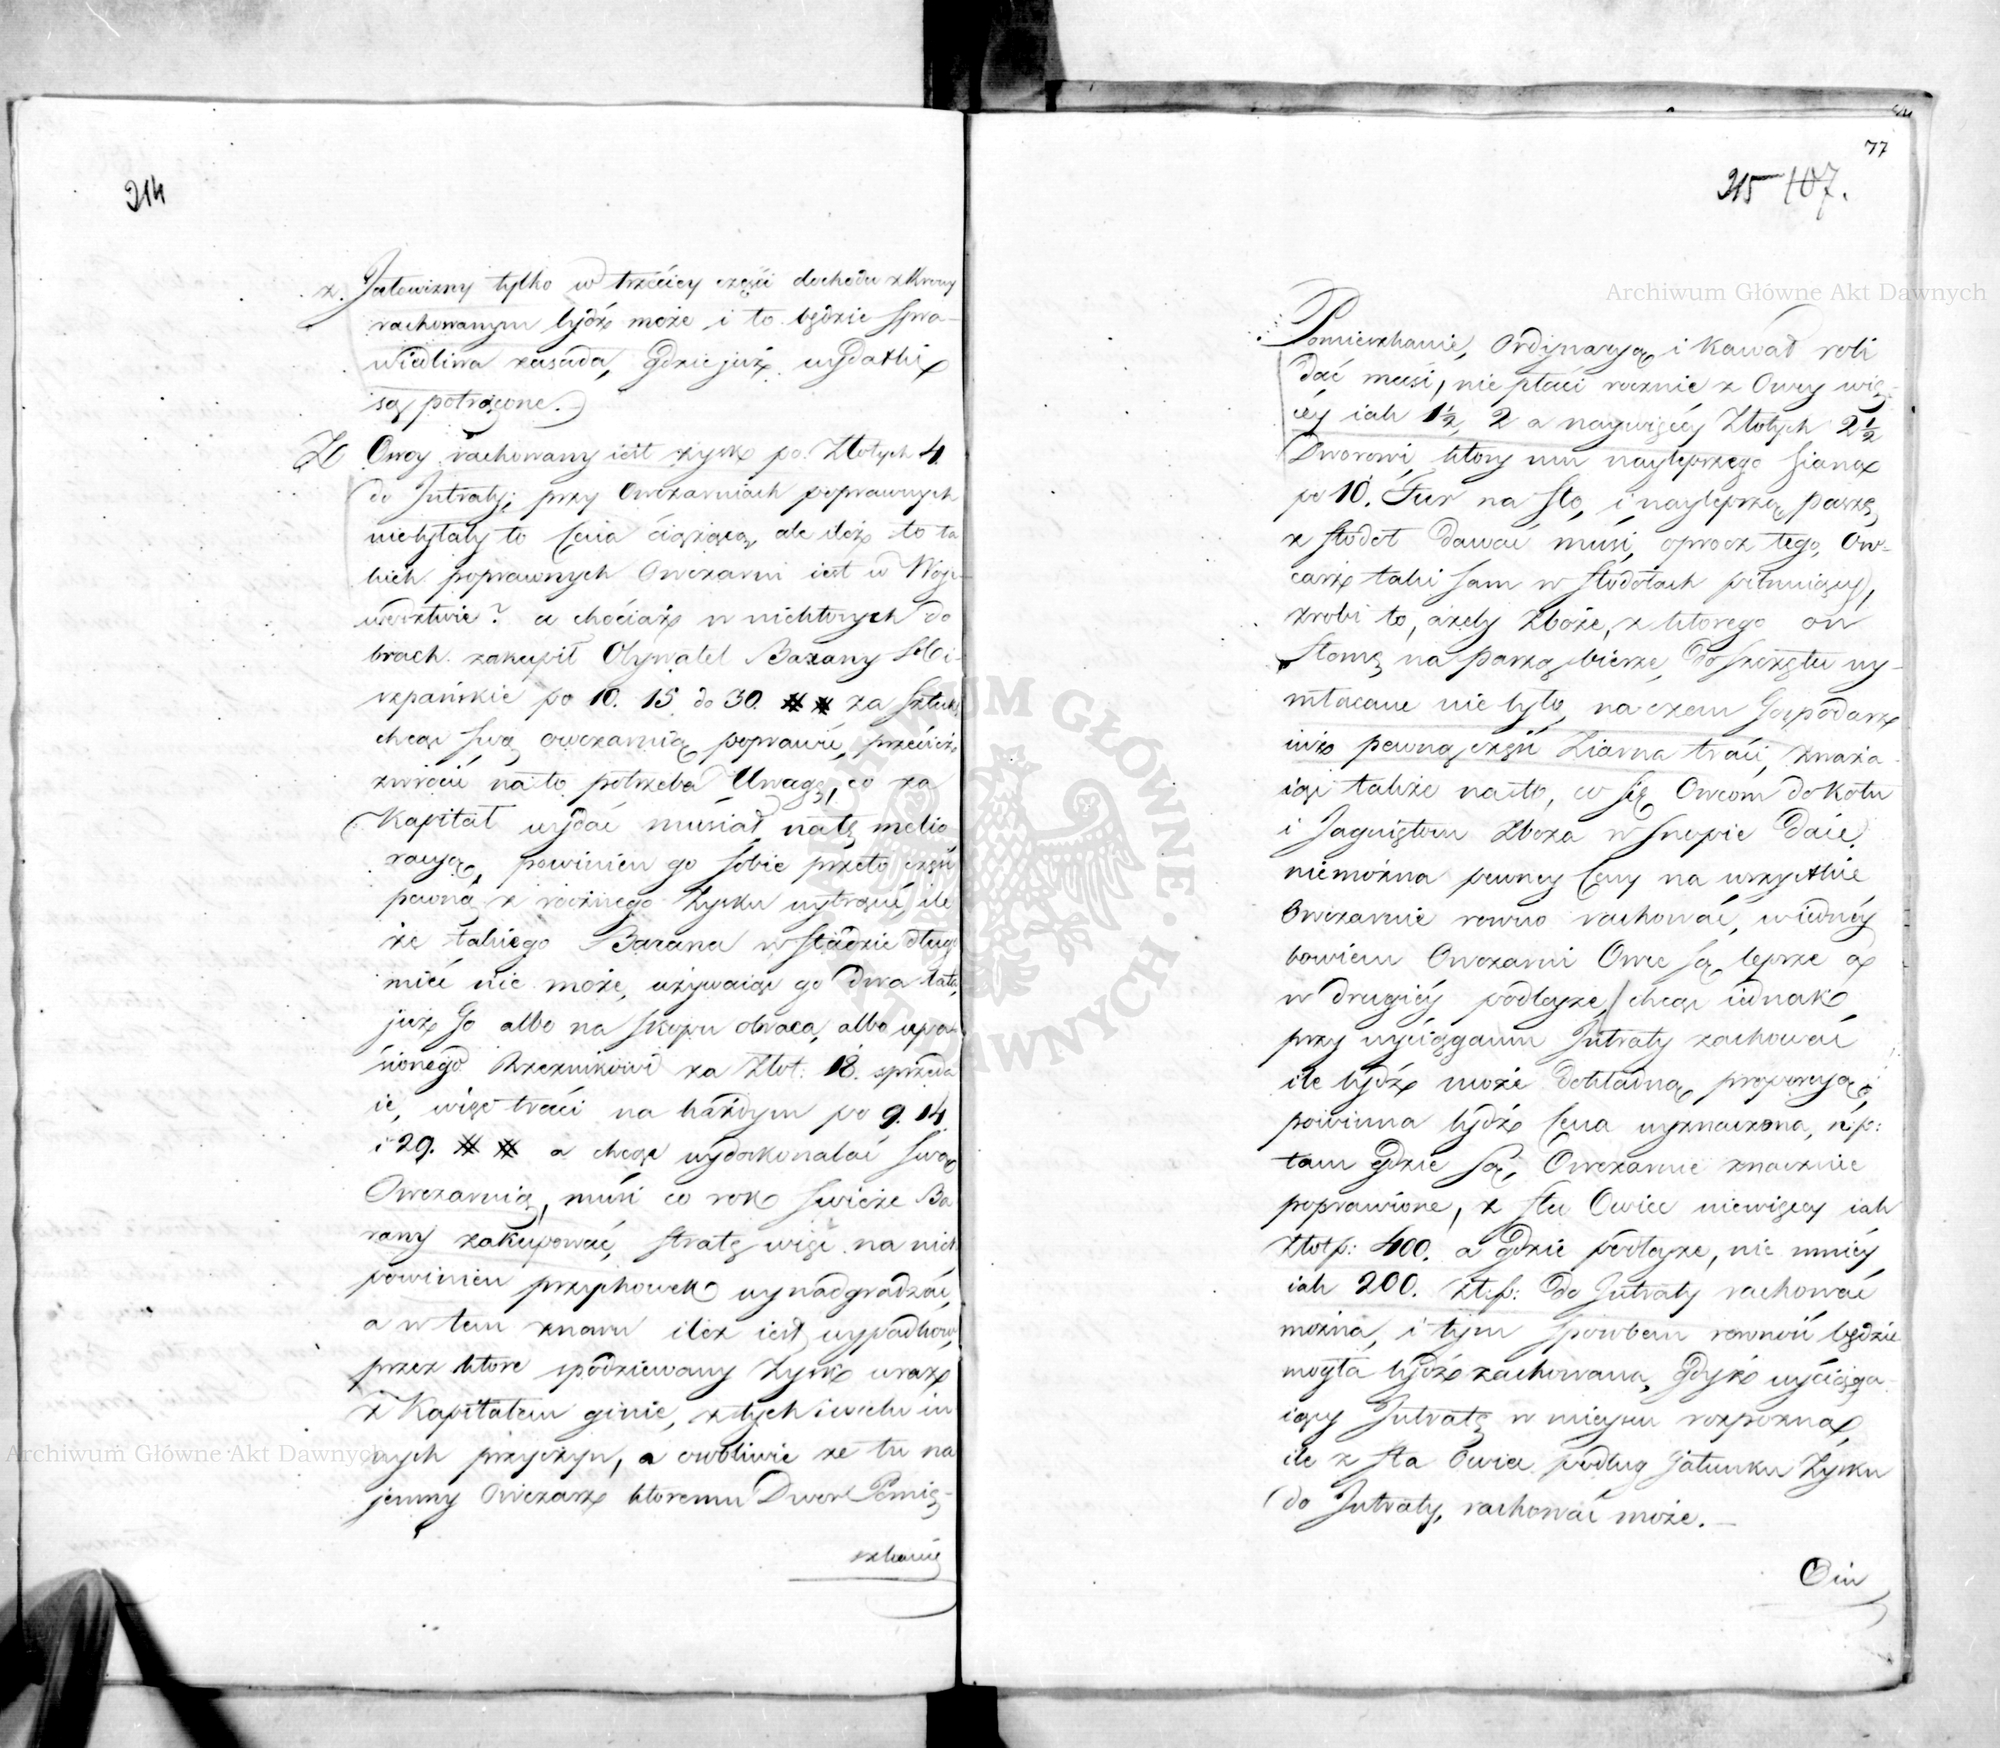 214
z. Jałowizny tylko w trzéciey części dochodu z Krowy
rachowanym bydź może i to będzie spra-
wiedliwa zasada, gdzie już wydatki
są potrącone.
Z Owcy rachowany iest zysk po Złotych 4
do Jntraty; przy Owczarniach poprawnych
niebyłaby to Cena ciążąca, ale ileż to ta
kich poprawnych Owczarni iest w Woje-
wodztwie? a chociaż w niektórych do
brach zakupił Obywatel Barany
po 10. 15 do 30. ## za Sztukę
chcąc swą owczarnią poprawić, przecież
zwrócić na to potrzeba Uwagę, co za
Kapitał wydać musiał na tę melio
racyą, powinien go sobie przeto część
pewną z rocznego Zysku wytrącić, ile
że takiego Barana w Stadzie długo
mieć nie może, używaiąc go dwa lata,
już go albo na skopu obraca, albo upa
sionego Rzeznikowi za Złot: 18. sprzeda
ie, więc traci na każdym po 9. 14.
i 29. ## a chcąc wydoskonalać swą
Owczarnią, musi co rok świeże Ba
rany zakupować, stratę więc na nich
powinien przychowek wynadgradzać,
a w tem znowu ileż iest wypadków,
przez które spodziewany Zysk wraz
z Kapitałem ginie, z tych i wielu in
nych przyczyn, a osobliwie że tu na
jemny Owczarz któremu Dwor Pomie-
szkanie
77
215 107.
Pomieszkanie, Ordynaryą i kawał roli
dać musi, nie płaci rocznie z Owcy wię-
cey iak 1½, 2 a naywięcey Złotych 2½
Dworowi, który mu naylepszego siana
po 10. Fur na sto, i naylepszą paszę
z stodoł dawać musi, oprocz tego, Ow-
carz taki sam w stodołach pilnuiący,
zrobi to, ażeby Zboże, z którego on
słomę na paszą bierze, do szczętu wy-
młacane nie było, na czem Gospodarz
iuż pewną część Ziarna traci, zważa-
iąc także na to, co się Owcom do Kotu
i Jagniętom Zboża w Snopie daie,
niemożna pewney Ceny na wszystkie
Owczarnie rowno rachować, w iedney
bowiem Owczarni Owce są lepsze a
w drugiey podleysze, chcąc iednak
przy wyciąganiu Jntraty zachować
ile bydź może dokładną proporcyą,
powinna bydź Cena wyznaczona, n:p:
tam gdzie są, Owczarnie znacznie
poprawione, z stu Owiec niewięcey iak
Złotp: 400. a gdzie podleysze, nie mniey
iak 200. Zł:p: do Jntraty rachować
można, i tym sposobem rowność będzie
mogła bydź zachowana, gdyż wyciąga-
iący Jntratę w mieyscu rozpozna,
ile z sta Owiec podług gatunku Zysku
do Jntraty, rachować może.—